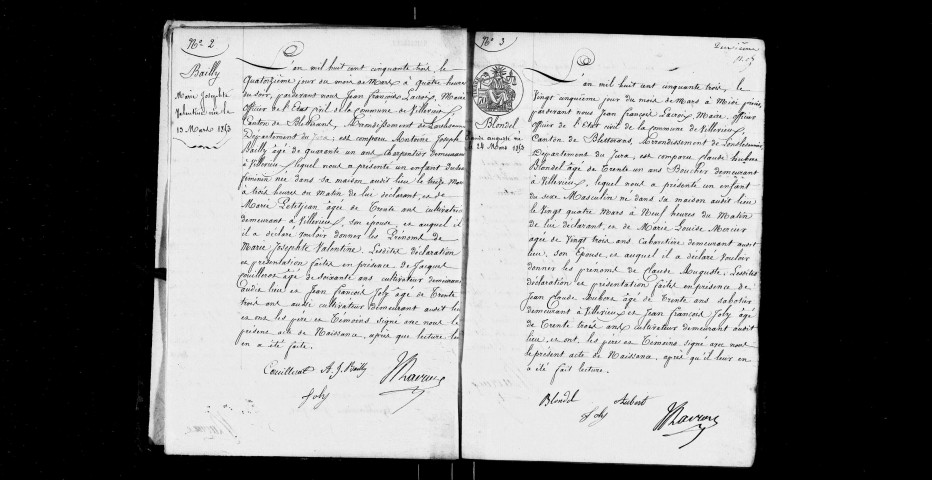 No 2
Bailly
Marie Josephte
Valentine née le
13 Mars 1853
L'an mil huit cent cinquante trois, le
Quatorzième jour du mois de Mars à quatre heures
du soir, pardevant nous Jean François Lacroix, Maire
officier de l'Etat civil de la commune de Villevieux,
Canton de Bletterans, Arrondissement de
Département du Jura, est comparu Antoine Joseph
Bailly âgé de quarante un ans Charpentier demeurant
à Villevieux, lequel nous a présenté un enfant du sexe
féminin née dans sa maison audit lieu le treize Mars
à trois heures du matin de lui déclarant, et de
Marie Petitjean âgée de Trente ans cultivatrice
demeurant à Villevieux, son épouse, et auquel il
il a déclaré vouloir donner les Prénoms de
Marie Josephte Valentine. Lesdites déclaration
et présentation faites en présence de Jacques
Couillerot âgé de soixante ans cultivateur demeurant
audit lieu et Jean François Joly âgé de Trente
trois ans aussi cultivateur demeurant audit lieu
et ont les père et Témoins signé avec nous le
présent acte de Naissance, après que lecture leur
en a été faite.
Couillerot A. J. Bailly
Joly
No 3
Blondel
Claude auguste né
le 24 Mars 1853
L'an mil huit cent cinquante trois, le
Vingt unquième jour du mois de Mars à Midi
pardevant nous Jean François Lacroix, Maire, officier
officier de l'Etat civil de la commune de Villevieux,
Canton de Bletterans Arrondissement de Lonslesaunier
Département du Jura, est comparu Claude
Blondel âgé de Trente un ans Boucher demeurant
à Villevieux, lequel nous a présenté un enfant
du sexe Masculin né dans sa maison audit lieu
le Vingt quatre Mars à Neuf heures du Matin
de lui déclarant, et de Marie Louise Mercier
agée de Vingt trois ans Cabaretière demeurant audit
lieu, son Epouse, et auquel il a déclaré vouloir
donner les prenoms de Claude Auguste. Lesdites
déclaration et présentation faites en présence de
Jean Claude âgé de Trente ans sabotier
demeurant à Villevieux et Jean François Joly âgé
de Trente trois ans cultivateur demeurant audit
lieu, et ont, les père et Temoins signé avec nous
le présent acte de Naissance, après qu'il leur en
a été fait lecture.
Blondel Aubert
Joly